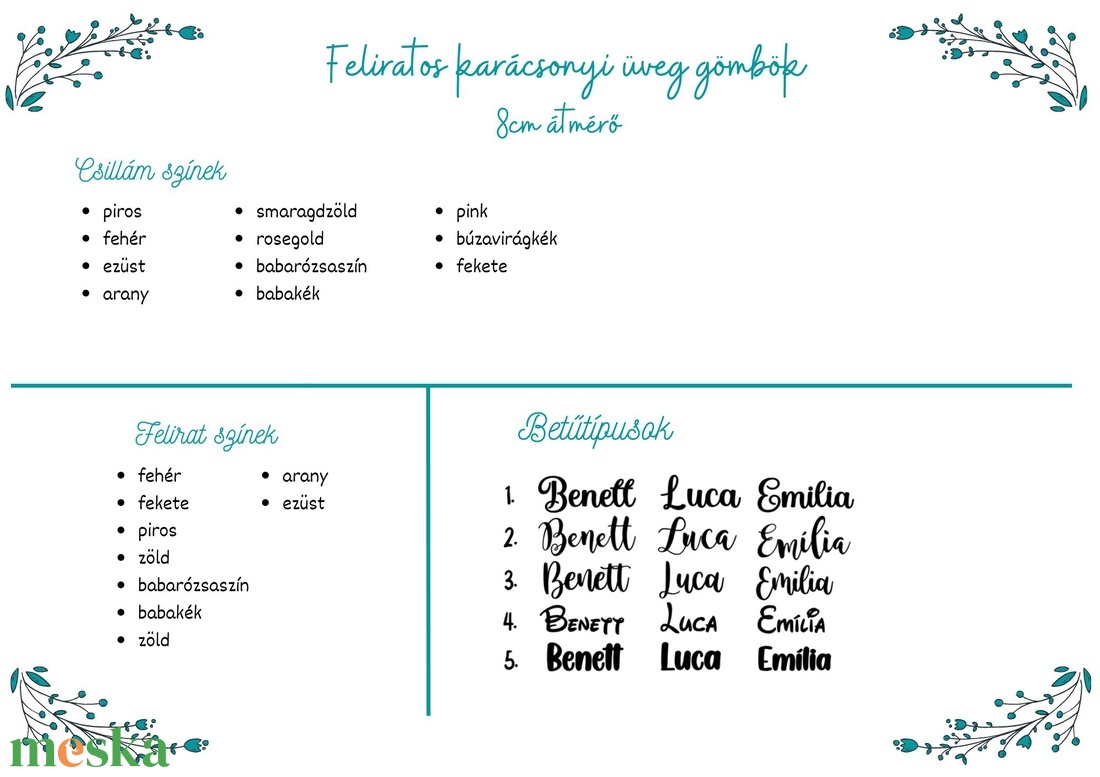 Feliratos karácsonyi üveg gömbök
8cm átmérő
Csillám színek
• piros
• fehér
• ezüst
• arany
• smaragdzöld
• rosegold
• babarózsaszín
• babakék
• pink
• búzavirágkék
• fekete
Felirat színek
• fehér
• fekete
• piros
• zöld
• babarózsaszín
• babakék
• zöld
• arany
• ezüst
Betűtípusok
1. Benett Luca Emilia
2. Benett Luca Emília
3. Benett Luca Emilia
4. Benett Luca Emília
5. Benett Luca Emília
meska